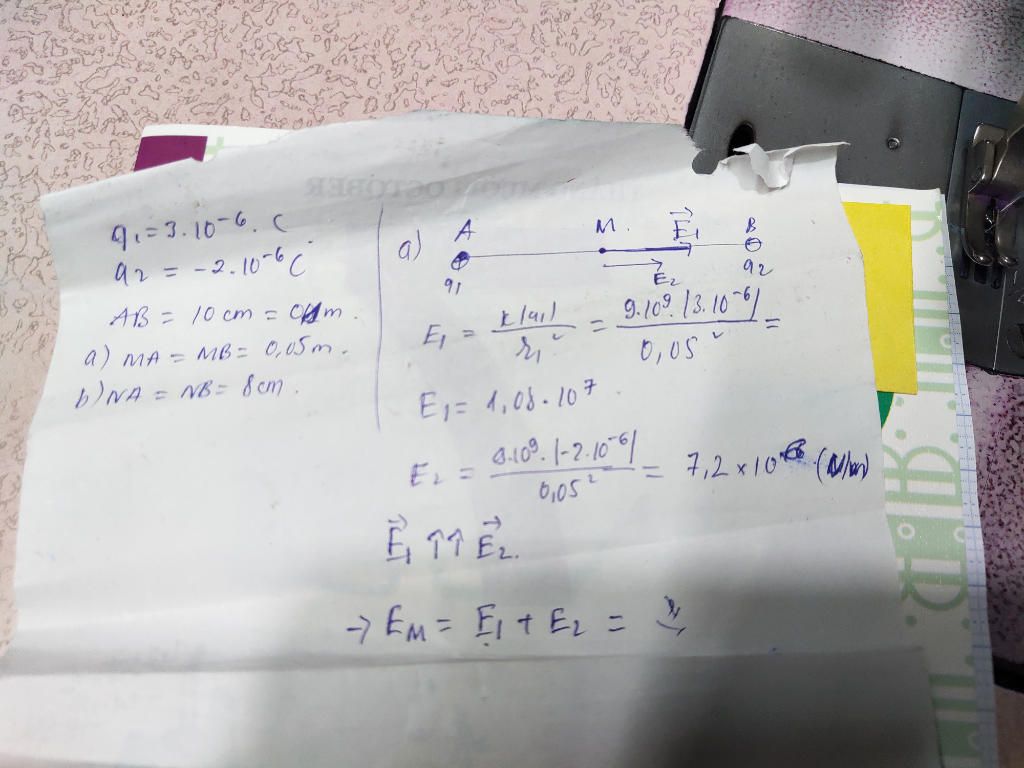 q₁ = 3.10⁻⁶. C
q₂ = -2.10⁻⁶ C
AB = 10 cm = 0,1m.
a) MA = MB = 0,05m.
b) NA = NB = 8cm.
a) A M. E₁ B
q₁ E₂ q₂
E₁ = k|q₁| / r₁² = 9.10⁹.|3.10⁻⁶| / 0,05² =
E₁ = 1,08.10⁷
E₂ = 9.10⁹.|-2.10⁻⁶| / 0,05² = 7,2 × 10⁶ (V/m)
E₁ ↑↑ E₂.
→ E_M = E₁ + E₂ =